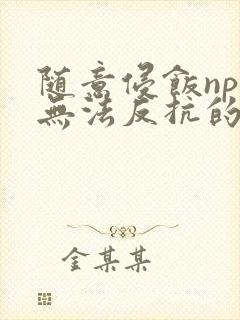 随意侵飯np
無法反抗的
金某某